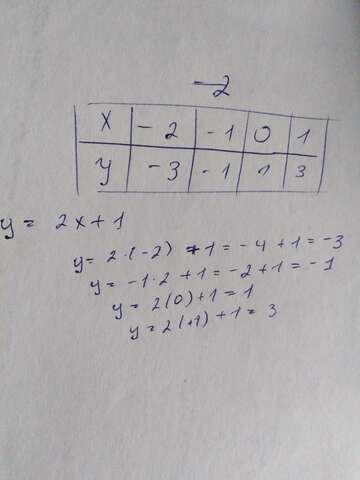 -2
x -2 -1 0 1
y -3 -1 1 3
y = 2x+1
y = 2·(-2) +1 = -4 +1 = -3
y = -1·2 +1 = -2+1 = -1
y = 2(0)+1 = 1
y = 2(+1)+1 = 3